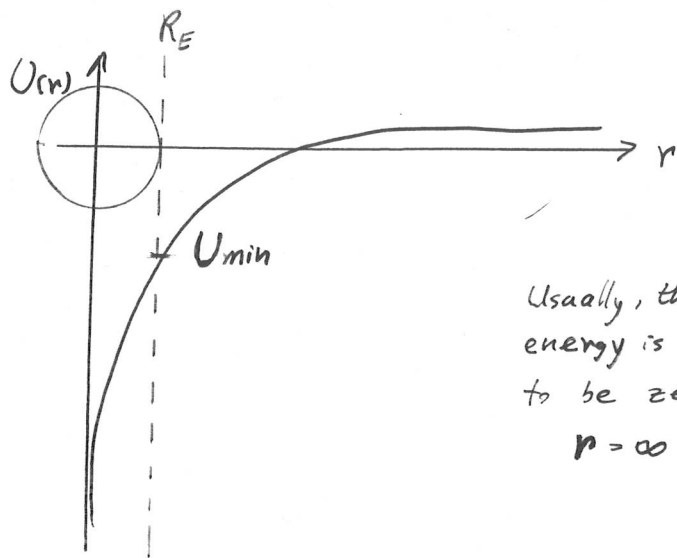 R_E
U(r)
r
Umin
Usually, th
energy is
to be ze
r = ∞